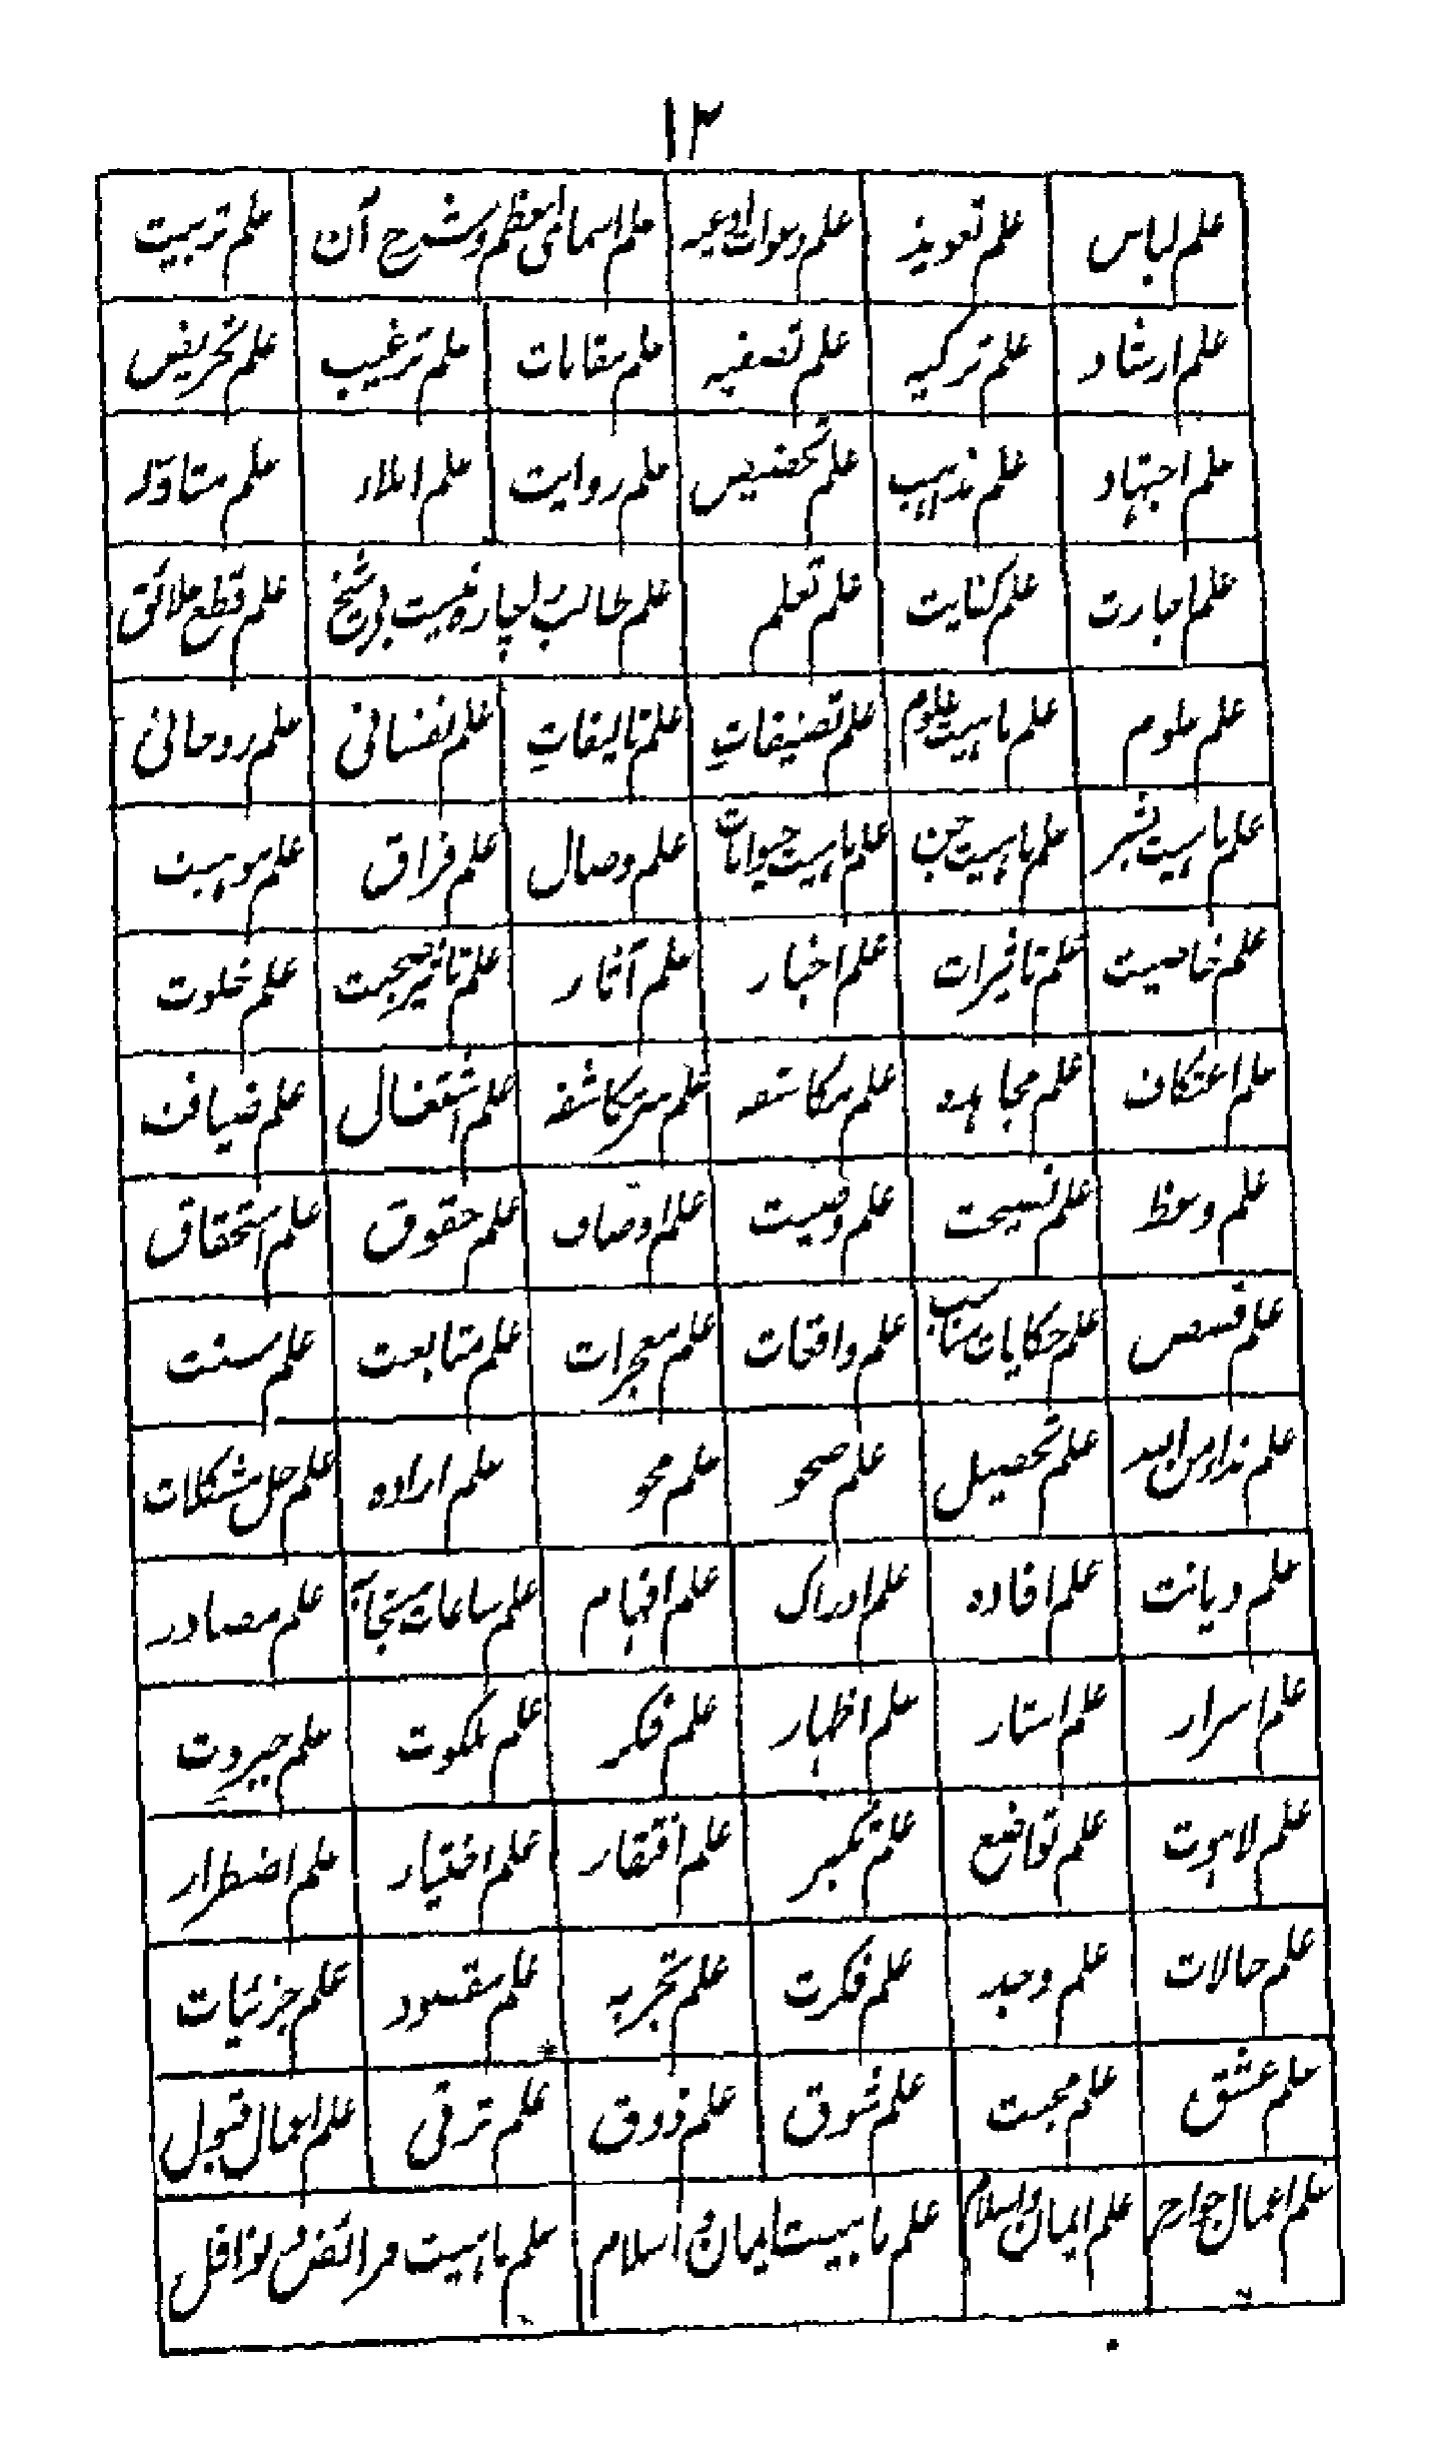 ۱۳
علم لباس علم تعویذ علم دعوات ادعیه علم اسمای اعظم و شرح آن علم تربیت
علم ارشاد علم تزکیه علم تصفیه علم مقامات علم ترغیب علم تحریض
علم اجتهاد علم مذاهب علم تخصیص علم روایت علم املاء علم متاوله
علم اجازت علم کتابت علم تعلم علم طالب علم قطع علائق
علم علوم علم ماهیت علوم علم تصنیفات علم تالیفات علم نفسانی علم روحانی
علم ماهیت بشر علم ماهیت جن علم ماهیت حیوانات علم وصال علم فراق علم موهبت
علم خاصیت علم تاثیرات علم اخبار علم آثار علم تاثیر صحبت علم خلوت
علم اعتکاف علم مجاهده علم مکاشفه علم سر مکاشفه علم اشتغال علم ضیافت
علم وعظ علم نصیحت علم وصیت علم اوصاف علم حقوق علم استحقاق
علم قصص علم حکایات مناسب علم واقعات علم معجزات علم متابعت علم سنت
علم نداء من الله علم تحصیل علم صحو علم محو علم اراده علم حل مشکلات
علم دیانت علم افاده علم ادراک علم افهام علم ساعات مستجابه علم مصادر
علم اسرار علم استار علم اظهار علم فکر علم ملکوت علم جبروت
علم لاهوت علم تواضع علم تکبر علم افتقار علم اختیار علم اضطرار
علم حالات علم وجد علم فکرت علم تجربه علم مقصود علم جزئیات
علم عشق علم محبت علم شوق علم ذوق علم ترقی علم اعمال قبول
علم اعمال جوارح علم ایمان و اسلام علم ماهیت ایمان و اسلام علم ماهیت فرائض و نوافل